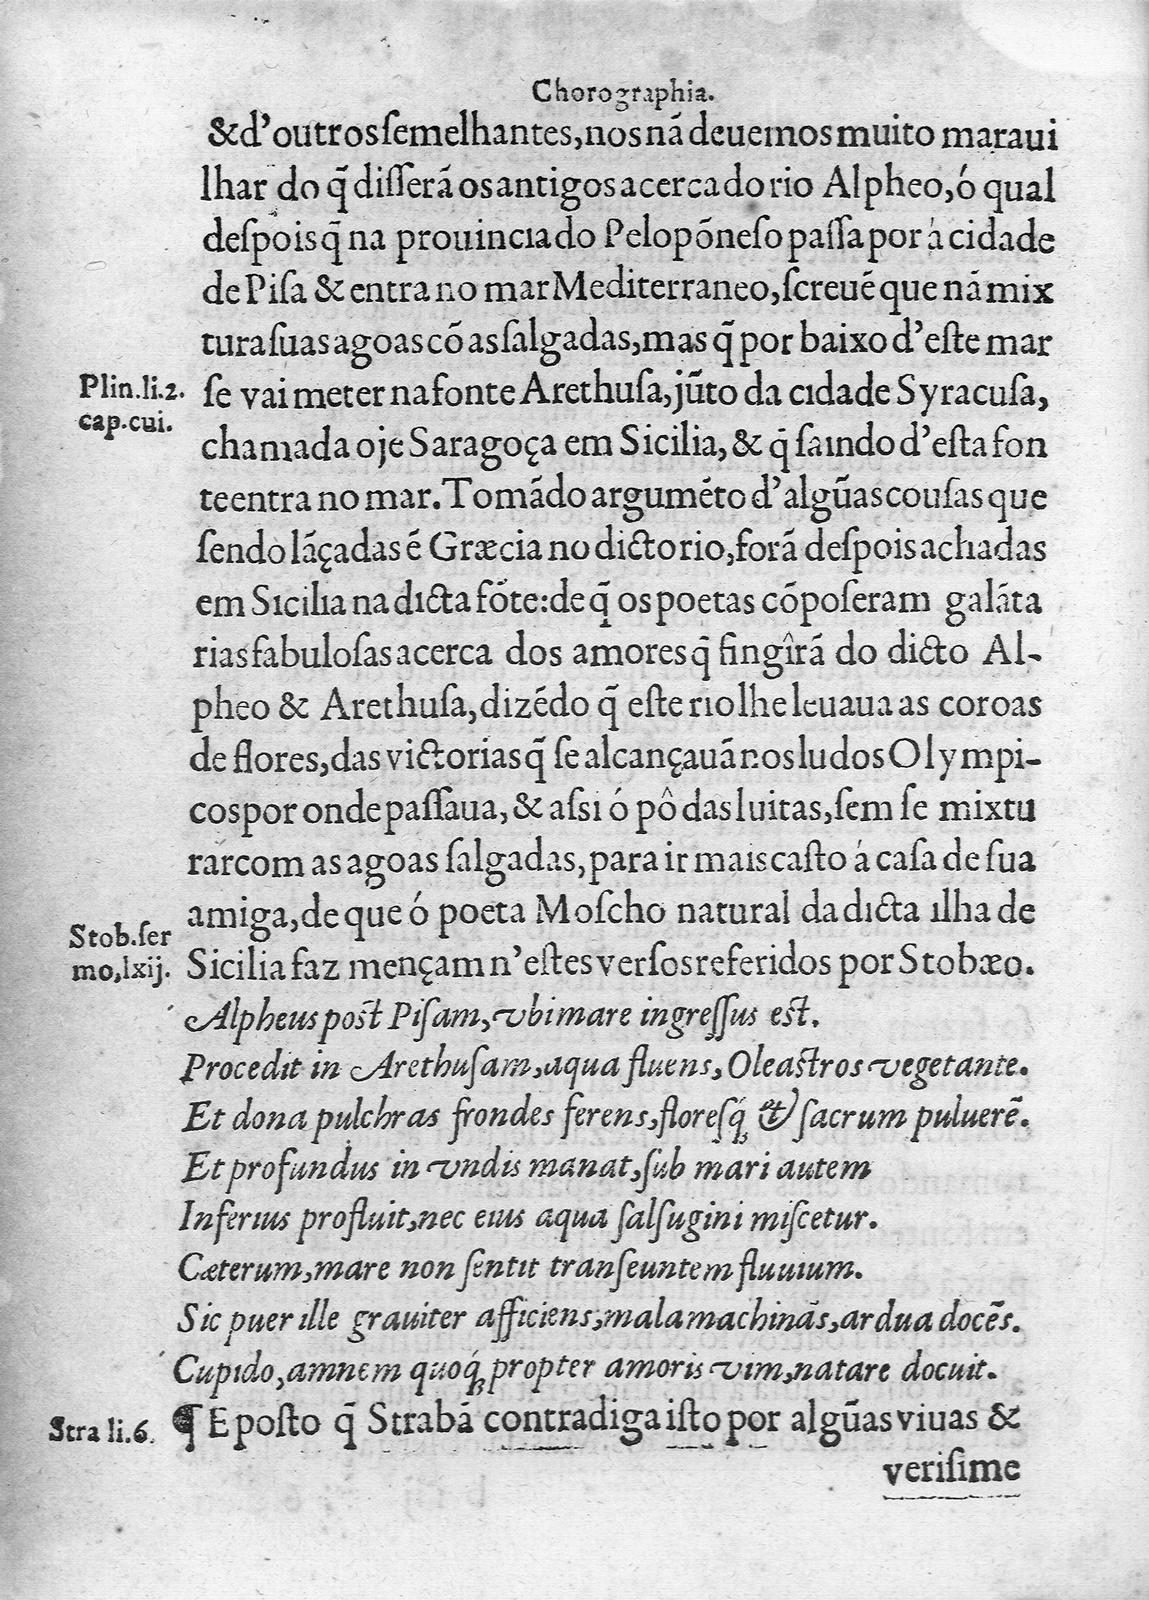 Chorographia.
&d'outros ſemelhantes, nos nã deuemos muito maraui
lhar do q̃ diſſerã os antigos acerca do rio Alpheo, ó qual
deſpois q̃ na prouincia do Pelopõneſo paſſa por á cidade
de Piſa & entra no mar Mediterraneo, ſcreuẽ que nã mix
tura ſuas agoas cõ as ſalgadas, mas q̃ por baixo d'eſte mar
Plin.li.2.
cap.cui.
ſe vai meter na fonte Arethuſa, jũto da cidade Syracuſa,
chamada oje Saragoça em Sicilia, & q̃ ſaindo d'eſta fon
te entra no mar. Tomãdo argumẽto d'algũas couſas que
ſendo lãçadas ẽ Græcia no dicto rio, forã deſpois achadas
em Sicilia na dicta fõte: de q̃ os poetas cõpoſeram galãta
rias fabuloſas acerca dos amores q̃ fingîrã do dicto Al-
pheo & Arethuſa, dizẽdo q̃ eſte rio lhe leuaua as coroas
de flores, das victorias q̃ ſe alcançauã nos ludos Olympi-
cos por onde paſſaua, & aſsi ó pô das luitas, ſem ſe mixtu
rar com as agoas ſalgadas, para ir mais caſto á caſa de ſua
amiga, de que ó poeta Moſcho natural da dicta ilha de
Stob.ſer
mo,lxij.
Sicilia faz mençam n'eſtes verſos referidos por Stobæo.
Alpheus poſt Piſam, vbi mare ingreſſus eſt.
Procedit in Arethuſam, aqua fluens, Oleaſtros vegetante.
Et dona pulchras frondes ferens, floreſq̃ & ſacrum puluerẽ.
Et profundus in vndis manat, ſub mari autem
Inferius profluit, nec eius aqua ſalſugini miſcetur.
Cæterum, mare non ſentit tranſeuntem fluuium.
Sic puer ille grauiter afficiens, mala machinãs, ardua docẽs.
Cupido, amnem quoq̃ propter amoris vim, natare docuit.
Stra li.6.
¶ E poſto q̃ Strabã contradiga iſto por algũas viuas &
veriſime